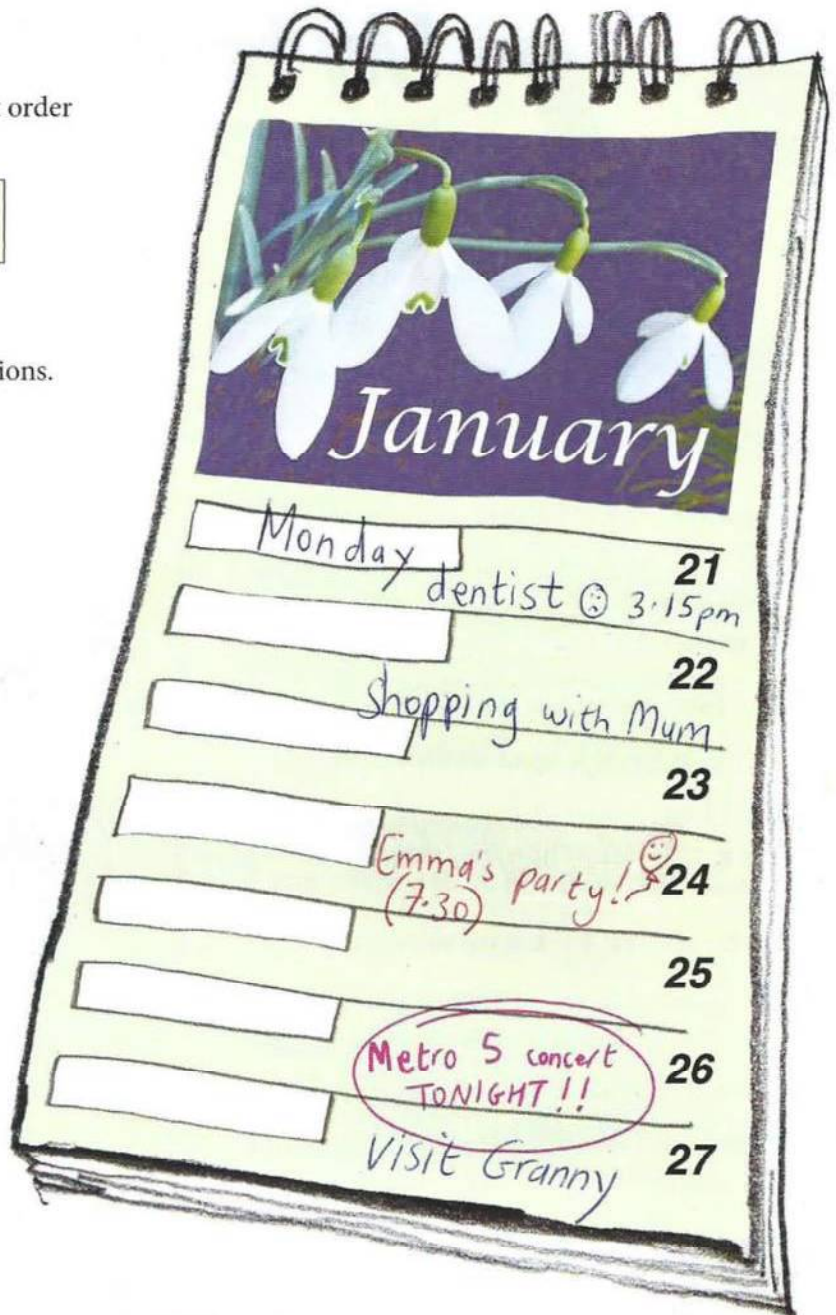 order
ions.
January
Monday
21
dentist 3.15pm
22
Shopping with Mum
23
Emma's party! 24
(7.30)
25
Metro 5 concert 26
TONIGHT!!
Visit Granny 27